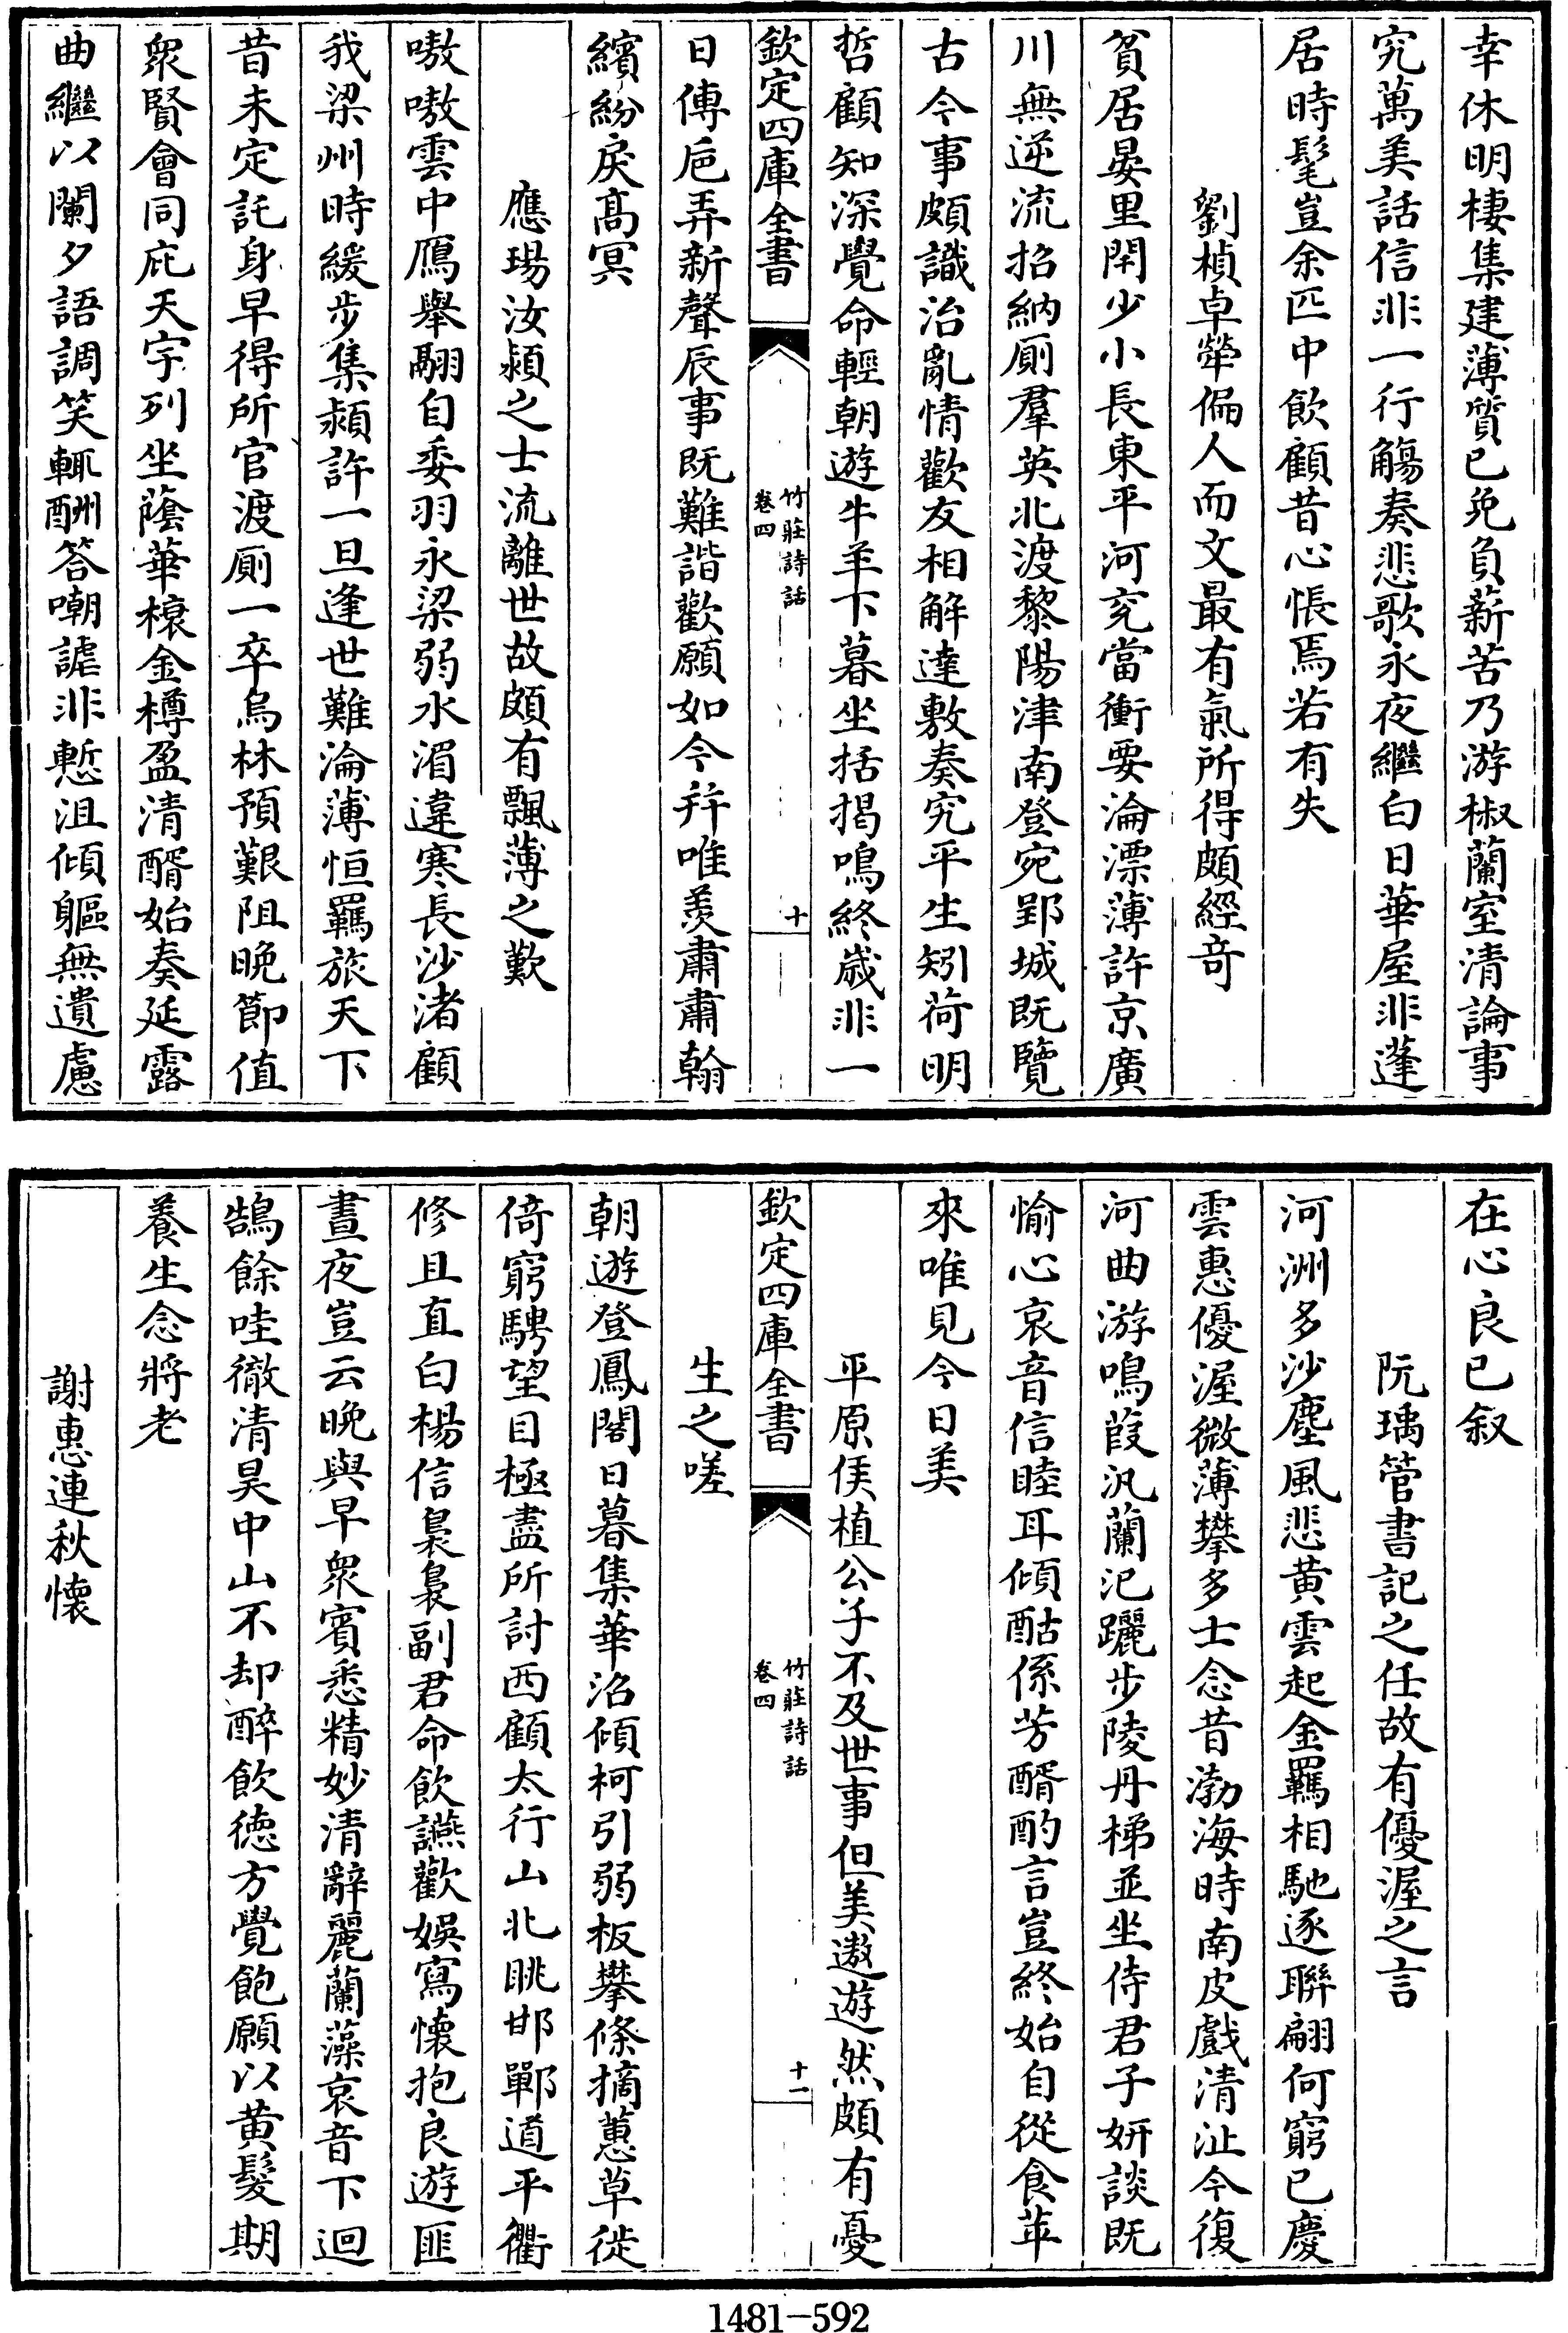 幸休明棲集建薄質已免負薪苦乃游椒蘭室清論事
究萬美話信非一行觴奏悲歌永夜繼白日華屋非蓬
居時髦豈余匹中飲顧昔心悵焉若有失
劉楨卓犖偏人而文最有氣所得頗經竒
貧居晏里閈少小長東平河兗當衝要淪漂薄許京廣
川無逆流招納厠羣英北渡黎陽津南登宛郢城既覽
古今事頗識治亂情歡友相解達敷奏究平生矧荷明
哲顧知深覺命輕朝遊牛羊下暮坐括揭鳴終歲非一
欽定四庫全書
竹莊詩話
卷四
十
日傅巵弄新聲辰事既難諧歡願如今并唯羨肅肅翰
繽紛戾髙冥
應瑒汝潁之士流離世故頗有飄薄之歎
嗷嗷雲中鴈舉翮自委羽永梁弱水湄違寒長沙渚顧
我梁州時緩步集潁許一旦逢世難淪薄恒羈旅天下
昔未定託身早得所官渡厠一卒烏林預艱阻晚節值
衆賢會同庇天宇列坐蔭華榱金樽盈清醑始奏延露
曲繼以闌夕語調笑輒酬答嘲謔非慙沮傾軀無遺慮
在心良已叙
阮瑀管書記之任故有優渥之言
河洲多沙塵風悲黄雲起金羈相馳逐聯翩何窮已慶
雲惠優渥微薄攀多士念昔渤海時南皮戲清沚今復
河曲游鳴葭汎蘭汜躧步陵丹梯並坐侍君子妍談既
愉心哀音信睦耳傾酤係芳醑酌言豈終始自從食苹
來唯見今日美
平原侯植公子不及世事但美遨遊然頗有憂
欽定四庫全書
竹莊詩話
卷四
十一
生之嗟
朝遊登鳳閣日暮集華沼傾柯引弱板攀條摘蕙草徙
倚窮騁望目極盡所討西顧太行山北眺邯鄲道平衢
修且直白楊信裊裊副君命飲讌歡娛寫懐抱良遊匪
晝夜豈云晚與早衆賓悉精妙清辭麗蘭藻哀音下迴
鵠餘哇徹清昊中山不却醉飲徳方覺飽願以黄髮期
養生念將老
謝惠連秋懐
1481-592